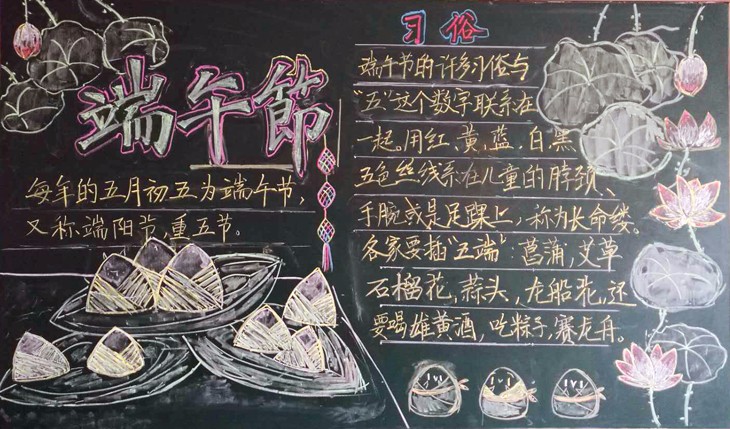 端午節
每年的五月初五为端午节，
又称端阳节，重五节。
习俗
端午节的许多习俗与
“五”这个数字联系在
一起。用红、黄、蓝、白、黑
五色丝线系在儿童的脖颈、
手腕或是足踝上，称为长命缕。
各家要插“五端”：菖蒲，艾草
石榴花，蒜头，龙船花，还
要喝雄黄酒，吃粽子，赛龙舟。